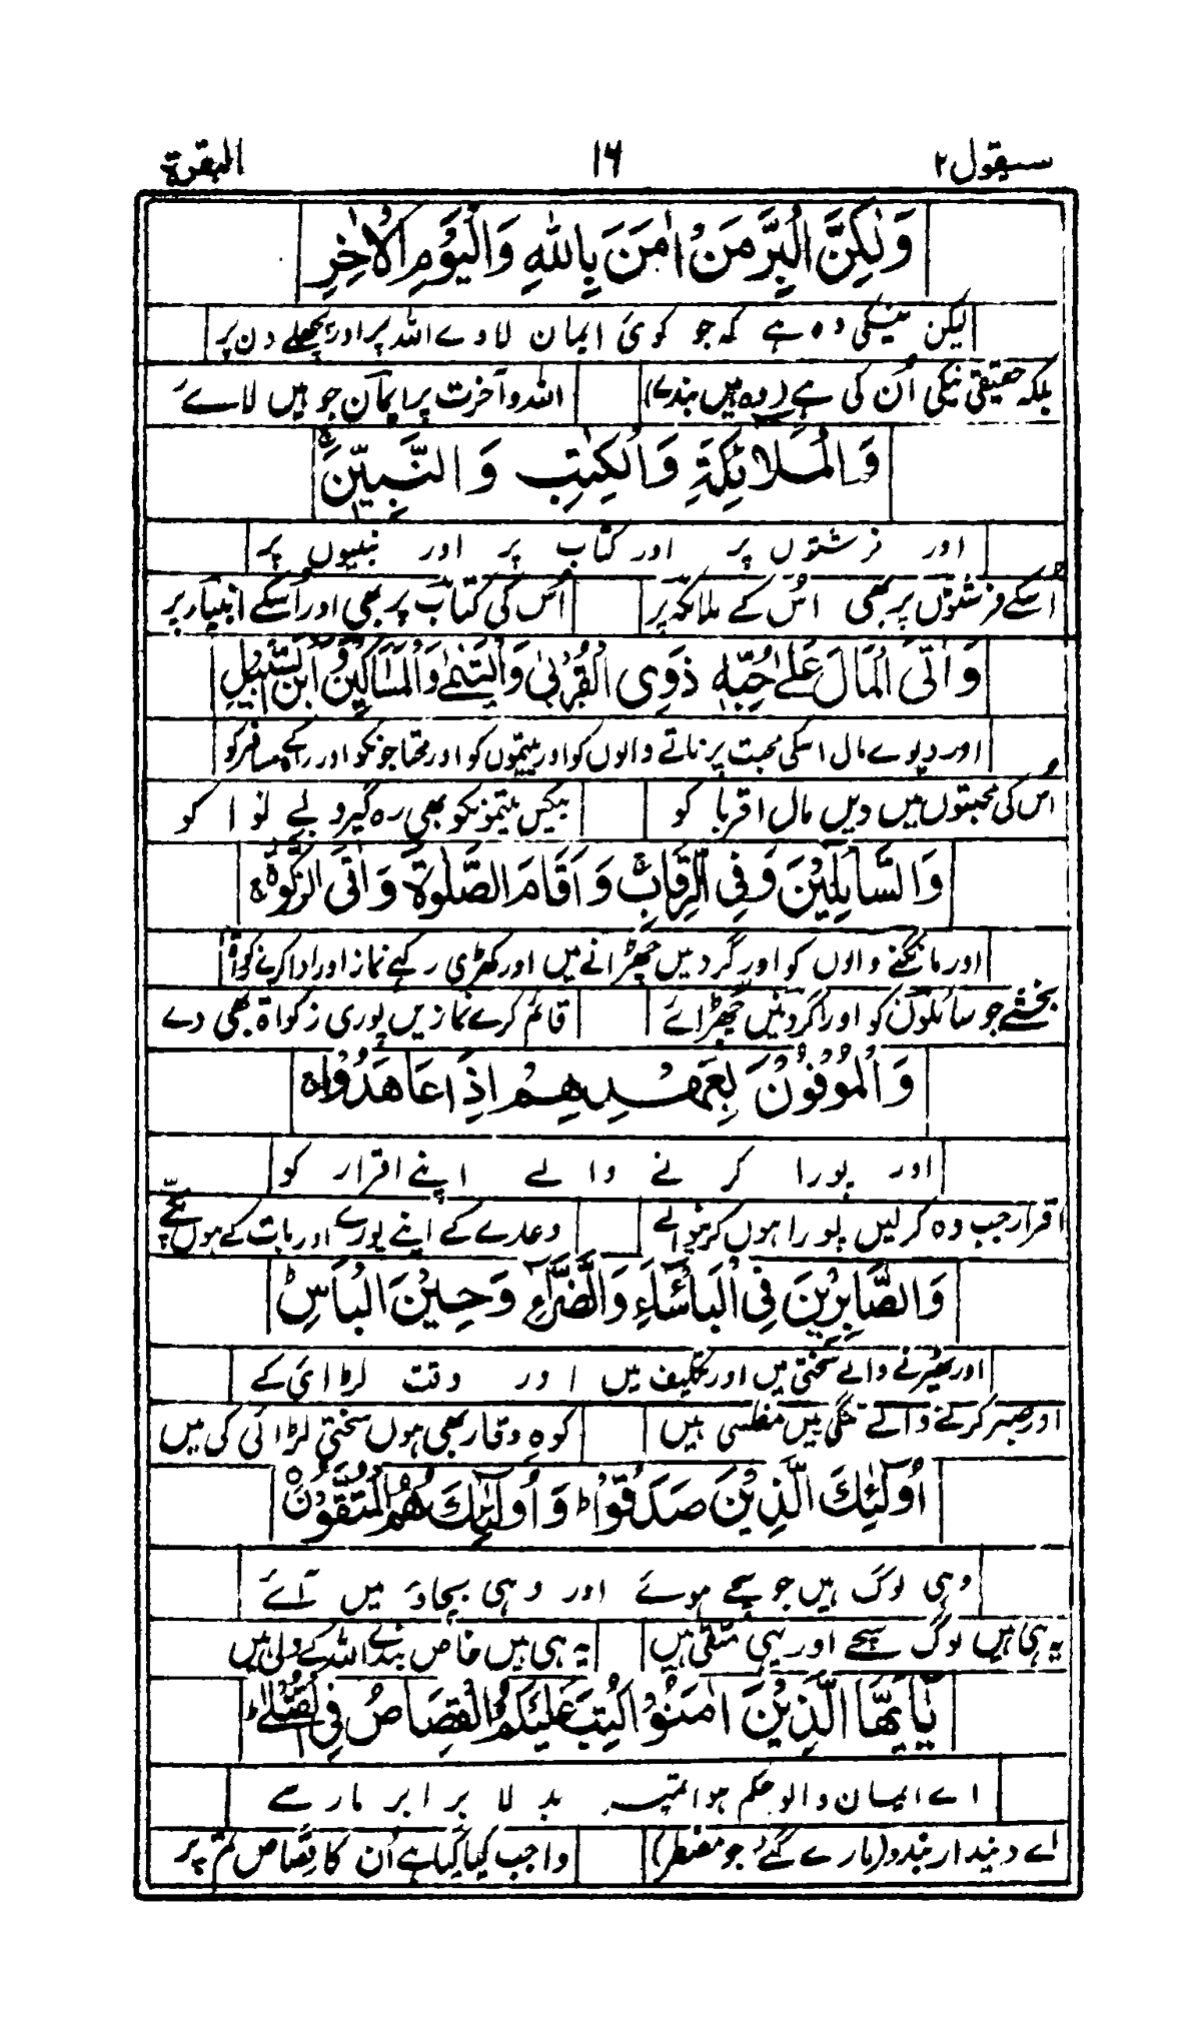 سیقول ۲ ۱۶ البقرة
وَلٰكِنَّ الْبِرَّ مَنْ اٰمَنَ بِاللّٰهِ وَالْيَوْمِ الْاٰخِرِ
لیکن نیکی وہ ہے کہ جو کوئی ایمان لاوے اللہ پر اور پچھلے دن پر
بلکہ حقیقی نیکی اُن کی ہے (وہ ہیں بندے) اللہ و آخرت پر ایمان جو ہیں لائے
وَالْمَلَآئِكَةِ وَالْكِتٰبِ وَالنَّبِيّٖنَ ۚ
اور فرشتوں پر اور کتاب پر اور نبیوں پر
اُسکے فرشتوں پر بھی اُس کے ملائکہ پر اُس کی کتاب پر بھی اور اُسکے انبیار پر
وَاٰتَى الْمَالَ عَلٰى حُبِّهٖ ذَوِى الْقُرْبٰى وَالْيَتٰمٰى وَالْمَسَاكِيْنَ وَابْنَ السَّبِيْلِ
اور دیوے مال اسکی محبت پر ناتے والوں کو اور یتیموں کو اور محتاجونکو اور راہ کے مسافر کو
اُس کی محبتوں میں دیں مال اقربا کو بیکس یتیمونکو بھی رہ گیرو بے نوا کو
وَالسَّآئِلِيْنَ وَفِى الرِّقَابِ ۚ وَاَقَامَ الصَّلٰوةَ وَاٰتَى الزَّكٰوةَ ۚ
اور مانگنے والوں کو اور گردنیں چھڑانے میں اور کھڑی رکھے نماز اور ادا کرے زکوٰۃ
بخشے جو سائلوں کو اور گردنیں چھڑائے قائم کرے نمازیں پوری زکواۃ بھی دے
وَالْمُوْفُوْنَ بِعَهْدِهِمْ اِذَا عَاهَدُوْا ۚ
اور پورا کرنے والے اپنے اقرار کو
اقرار جب وہ کرلیں پورا ہوں کرنوالے وعدے کے اپنے پورے اور بات کے ہوں سچے
وَالصَّابِرِيْنَ فِى الْبَأْسَآءِ وَالضَّرَّآءِ وَحِيْنَ الْبَأْسِ ؕ
اور ٹھیرنے والے سختی میں اور تکلیف میں اور وقت لڑائی کے
اور صبر کرنے والے تنگی ہیں مفلسی ہیں کوہ وقار بھی ہوں سختی لڑائی کی میں
اُولٰٓئِكَ الَّذِيْنَ صَدَقُوْا ؕ وَاُولٰٓئِكَ هُمُ الْمُتَّقُوْنَ
وہی لوگ ہیں جو سچے ہوئے اور وہی بچاؤ میں آئے
یہ ہی ہیں لوگ سچے اور یہی متقی ہیں یہ ہی ہیں خاص بندے اللہ کے ولی ہیں
يٰٓاَيُّهَا الَّذِيْنَ اٰمَنُوْا كُتِبَ عَلَيْكُمُ الْقِصَاصُ فِى الْقَتْلٰى ؕ
اے ایمان والو حکم ہوا تمپر بدلا برابر مارے
اے دیندار بندو (مارے گئے جو مضطر) واجب کیا گیا ہے اُن کا قصاص تم پر